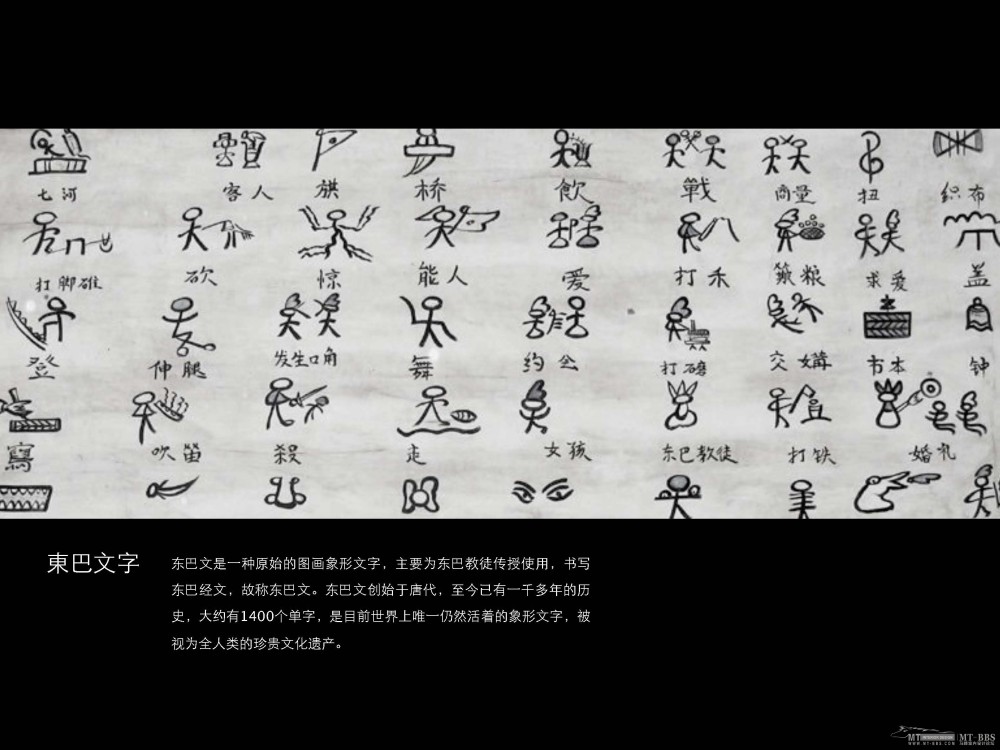 客人 旗 桥 飲 戰 商量 扭 织布
打脚碓 砍 惊 能人 爱 打禾 簸粮 求爱 盖
登 伸腿 发生口角 舞 约会 打磨 交媾 书本 钟
寫 吹笛 殺 走 女孩 东巴教徒 打铁 婚礼
東巴文字
东巴文是一种原始的图画象形文字，主要为东巴教徒传授使用，书写
东巴经文，故称东巴文。东巴文创始于唐代，至今已有一千多年的历
史，大约有1400个单字，是目前世界上唯一仍然活着的象形文字，被
视为全人类的珍贵文化遗产。
MT-BBS